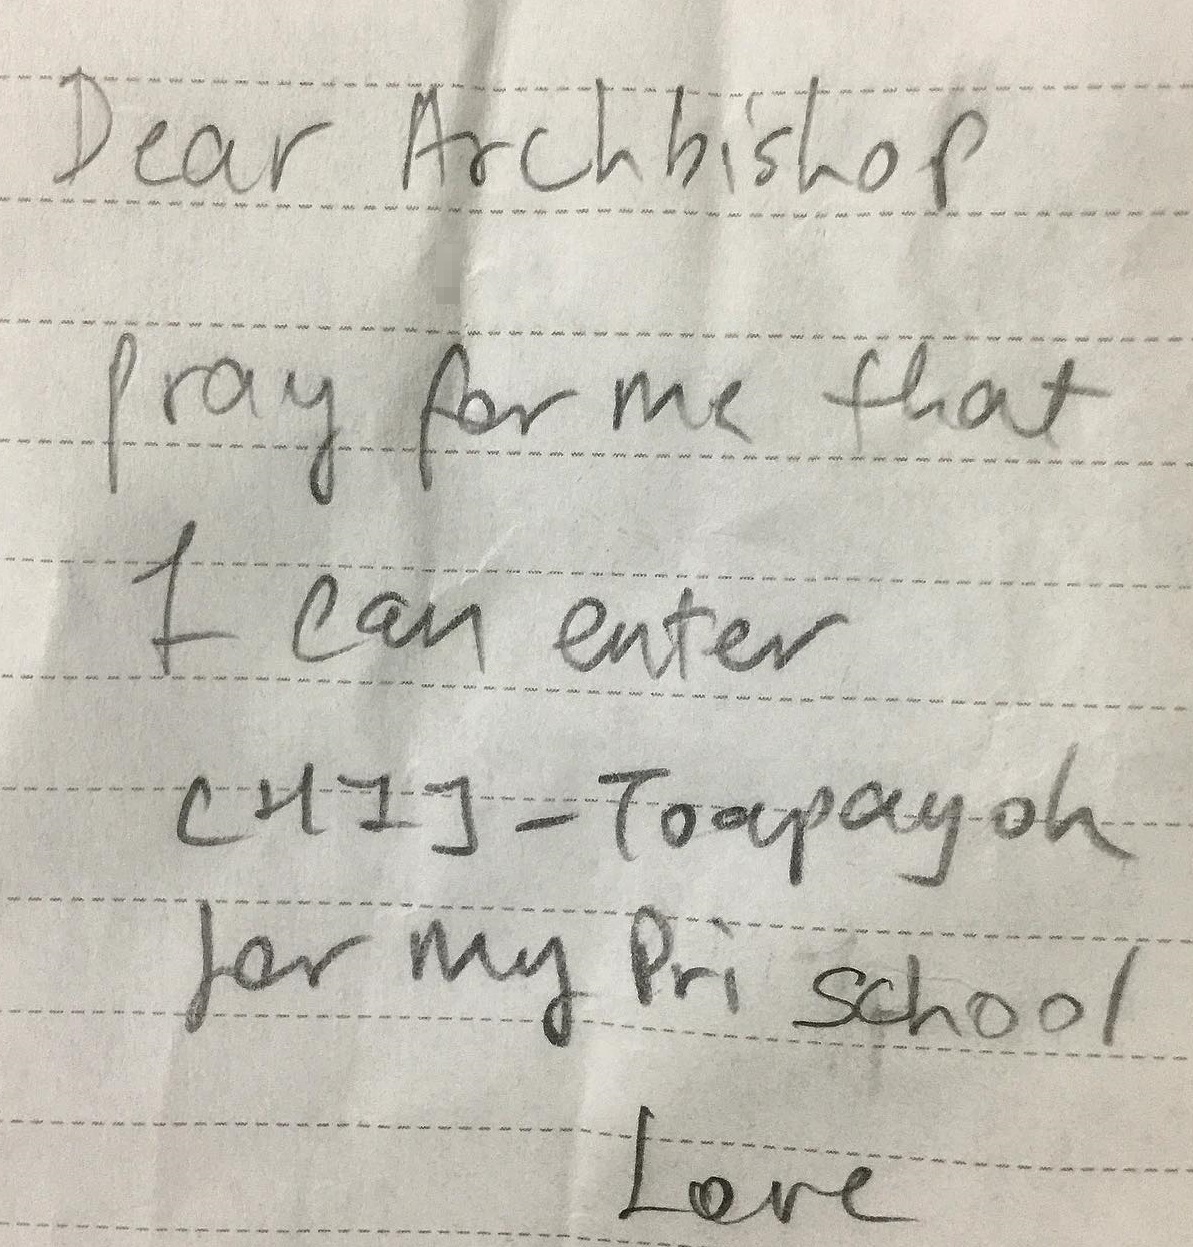 Dear Archbishop
Pray for me that
I can enter
CHIJ-Toapayoh
for my Pri school
Love